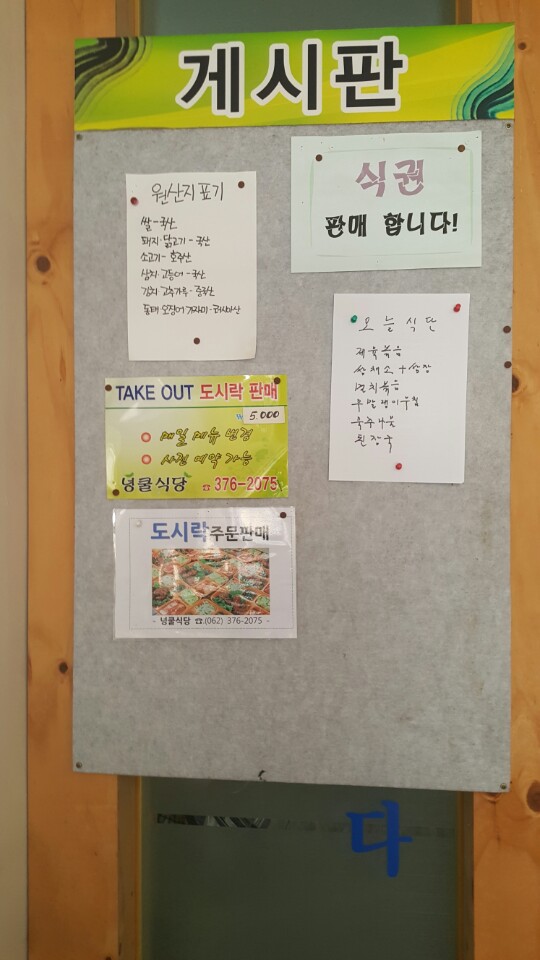 게시판
원산지 표기
쌀 - 국산
돼지·닭고기 - 국산
소고기 - 호주산
삼치·고등어 - 국산
김치 고추가루 - 중국산
동태 오징어 가자미 - 러시아산
식권
판매 합니다!
오늘 식단
제육볶음
쌈채소 + 쌈장
멸치볶음
무말랭이무침
숙주나물
된장국
TAKE OUT 도시락 판매
₩ 5.000
매일 메뉴 변경
사전 예약 가능
넝쿨식당 ☎ 376-2075
도시락주문판매
- 넝쿨식당 ☎.(062) 376-2075 -
다